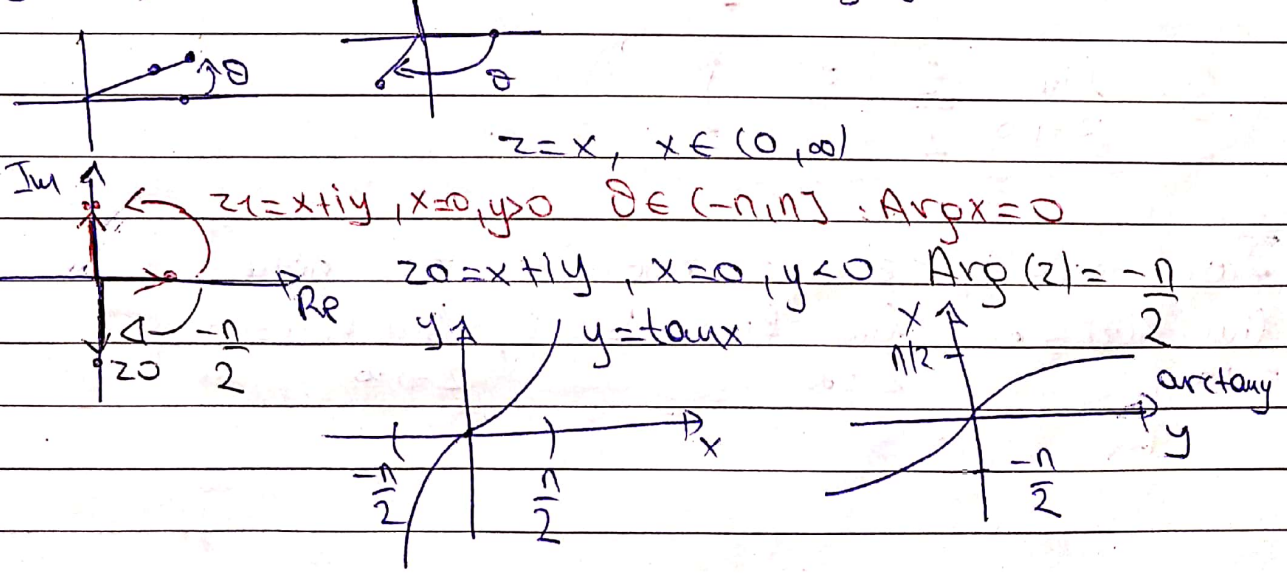 θ
θ
z=x, x∈(0,∞)
Im
z1=x+iy, x=0, y>0 θ∈(-π,π] : Arg x=0
z0=x+iy, x=0, y<0 Arg(z)=-π/2
Re
z0 -π/2
y y=tanx
x
-π/2 π/2
x
π/2
arctany
y
-π/2